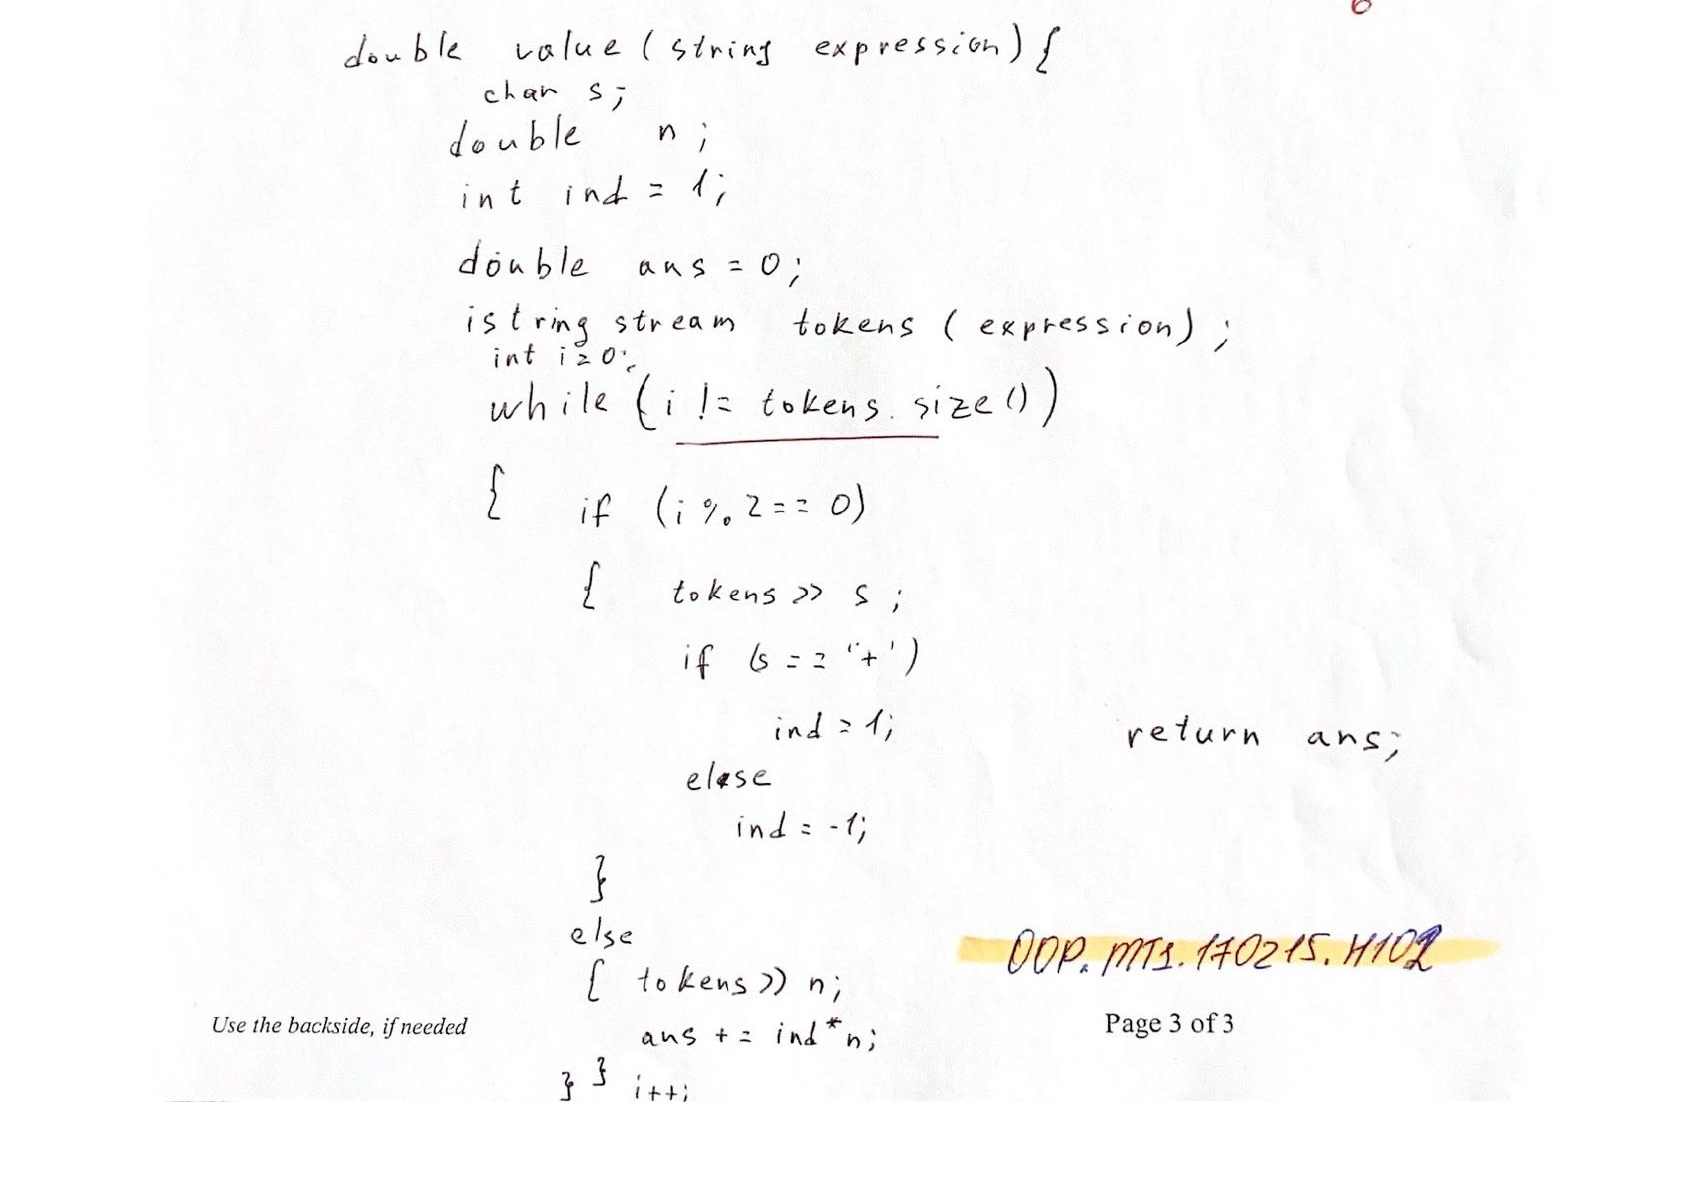 6
double value (string expression) {
char s;
double n;
int ind = 1;
double ans = 0;
istringstream tokens (expression);
int i = 0;
while (i != tokens.size())
{ if (i % 2 == 0)
{ tokens >> s;
if (s == '+')
ind = 1;
else
ind = -1;
}
else
{ tokens >> n;
ans += ind*n;
} } i++;
return ans;
OOP.MT1.170215.H102
Use the backside, if needed
Page 3 of 3